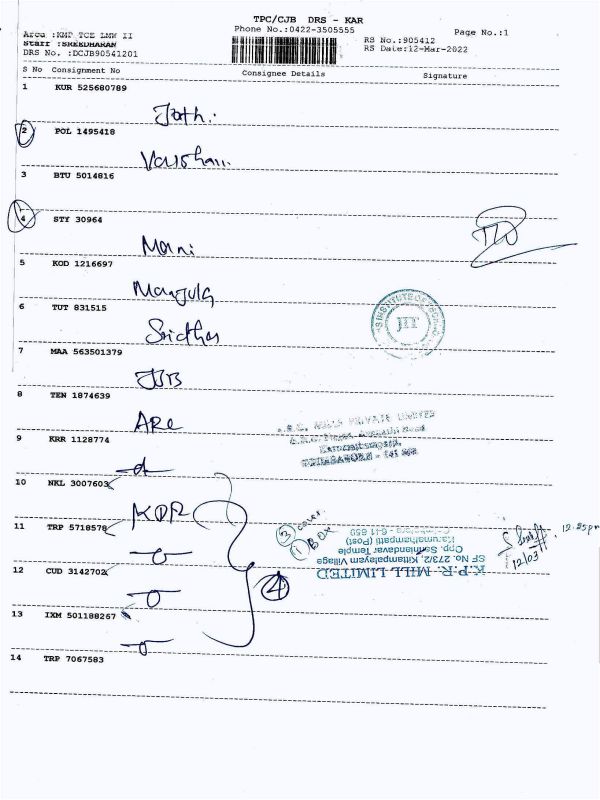 TPC/CJB DRS - KAR
Phone No.:0422-3505555
Page No.:1
Area :KMP TCE LMW II
RS No.:905412
Staff :SREEDHARAN
RS Date:12-Mar-2022
DRS No. :DCJB90541201
S No Consignment No Consignee Details Signature
1 KUR 525680789
Jothi
2 POL 1495418
3 BTU 5014816
4 STY 30964
Mani
5 KOD 1216697
Manjula
6 TUT 831515
Sridhar
JIT
7 MAA 563501379
JBB
8 TEN 1874639
ARC
MILLS PRIVATE LIMITED
9 KRR 1128774
10 NKL 3007603
KPR
11 TRP 5718578
3 cover
1 Box
12.25pm
12/03
K.P.R. MILL LIMITED
SF No. 273/2, Kittampalayam Village
Opp. Samlandavar Temple
Karumathampatti (Post)
Coimbatore - 641 659
12 CUD 3142702
4
13 IXM 501188267
14 TRP 7067583